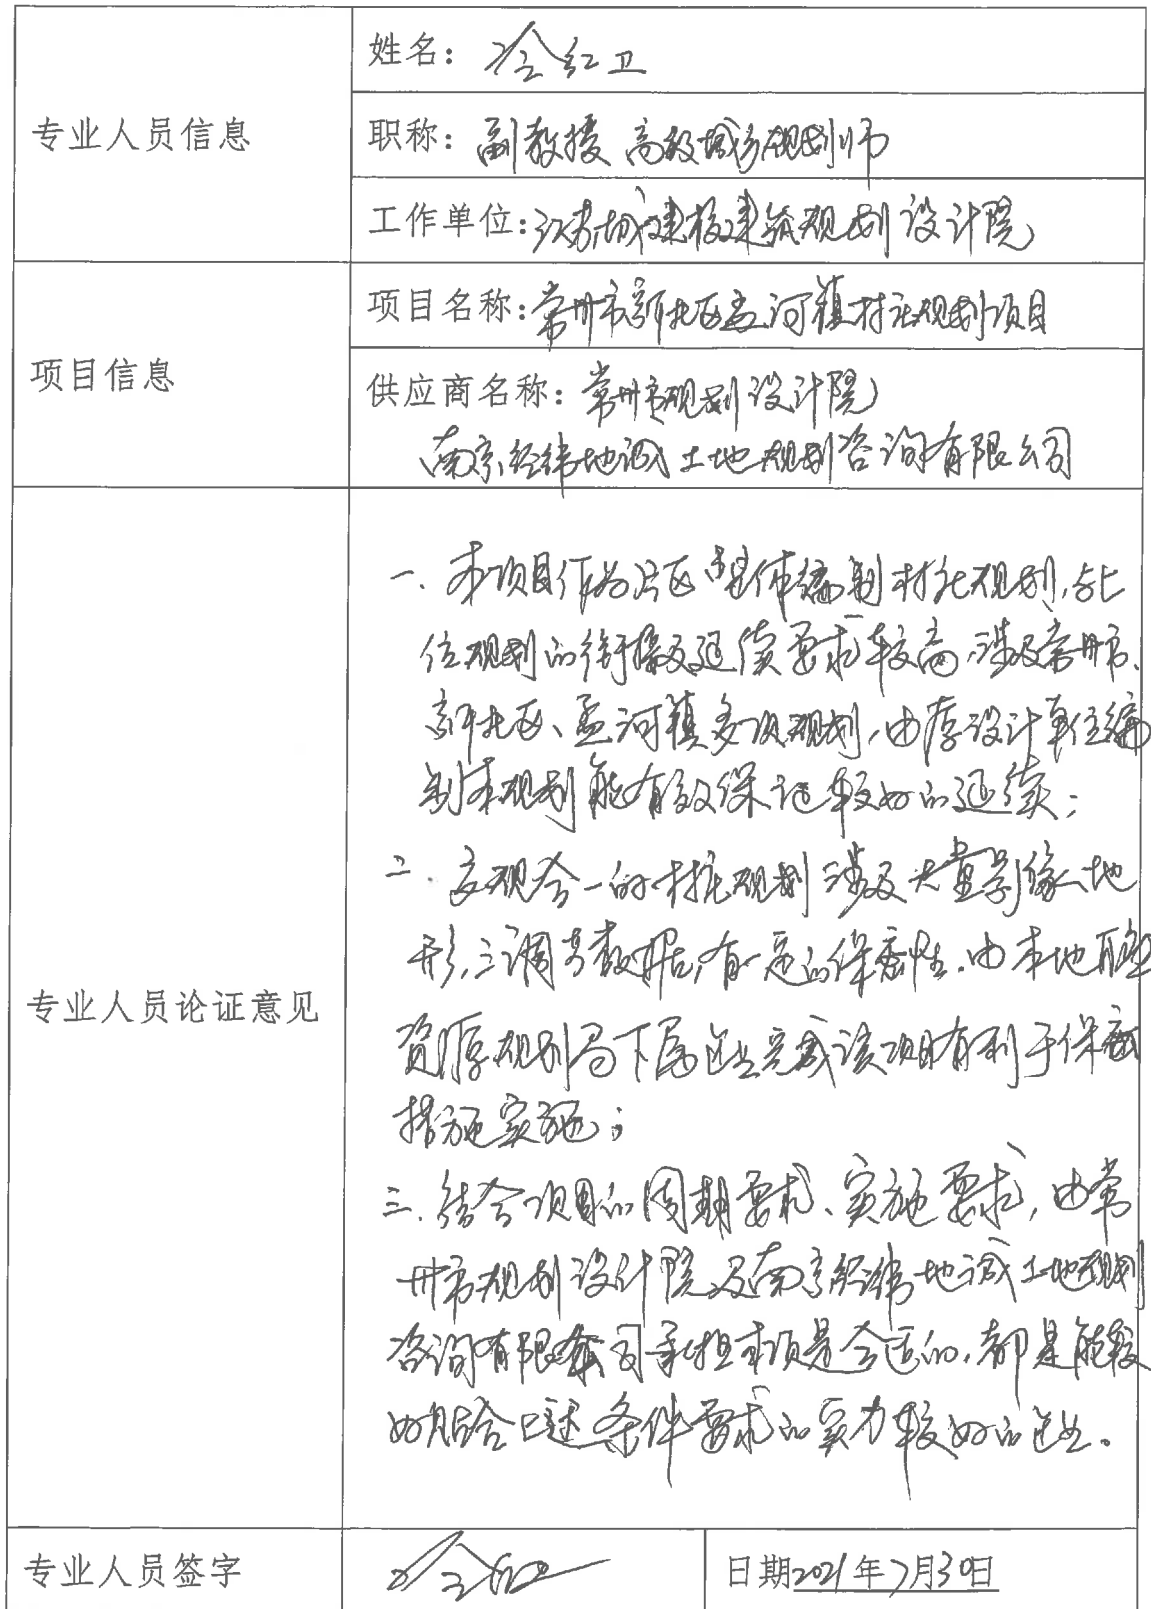 专业人员信息
姓名：冷红卫
职称：副教授 高级城乡规划师
工作单位：江苏城建校建筑规划设计院
项目信息
项目名称：常州市新北区孟河镇村庄规划项目
供应商名称：常州市规划设计院
南京经纬地诚土地规划咨询有限公司
专业人员论证意见
一、本项目作为片区整体编制村庄规划，与上
位规划的衔接及延续要求较高，涉及常州市、
新北区、孟河镇多项规划，由原设计单位编
制本规划能有效保证较好的延续；
二、多规合一的村庄规划涉及大量影像、地
形、三调等数据，有一定的保密性。由本地
资源规划局下属企业完成该项目有利于保密
措施实施；
三、结合项目的周期要求、实施要求，由常
州市规划设计院及南京经纬地诚土地规划
咨询有限公司承担本项是合适的，都是能较
好结合上述条件要求的实力较好的企业。
专业人员签字
冷红卫
日期2021年7月30日